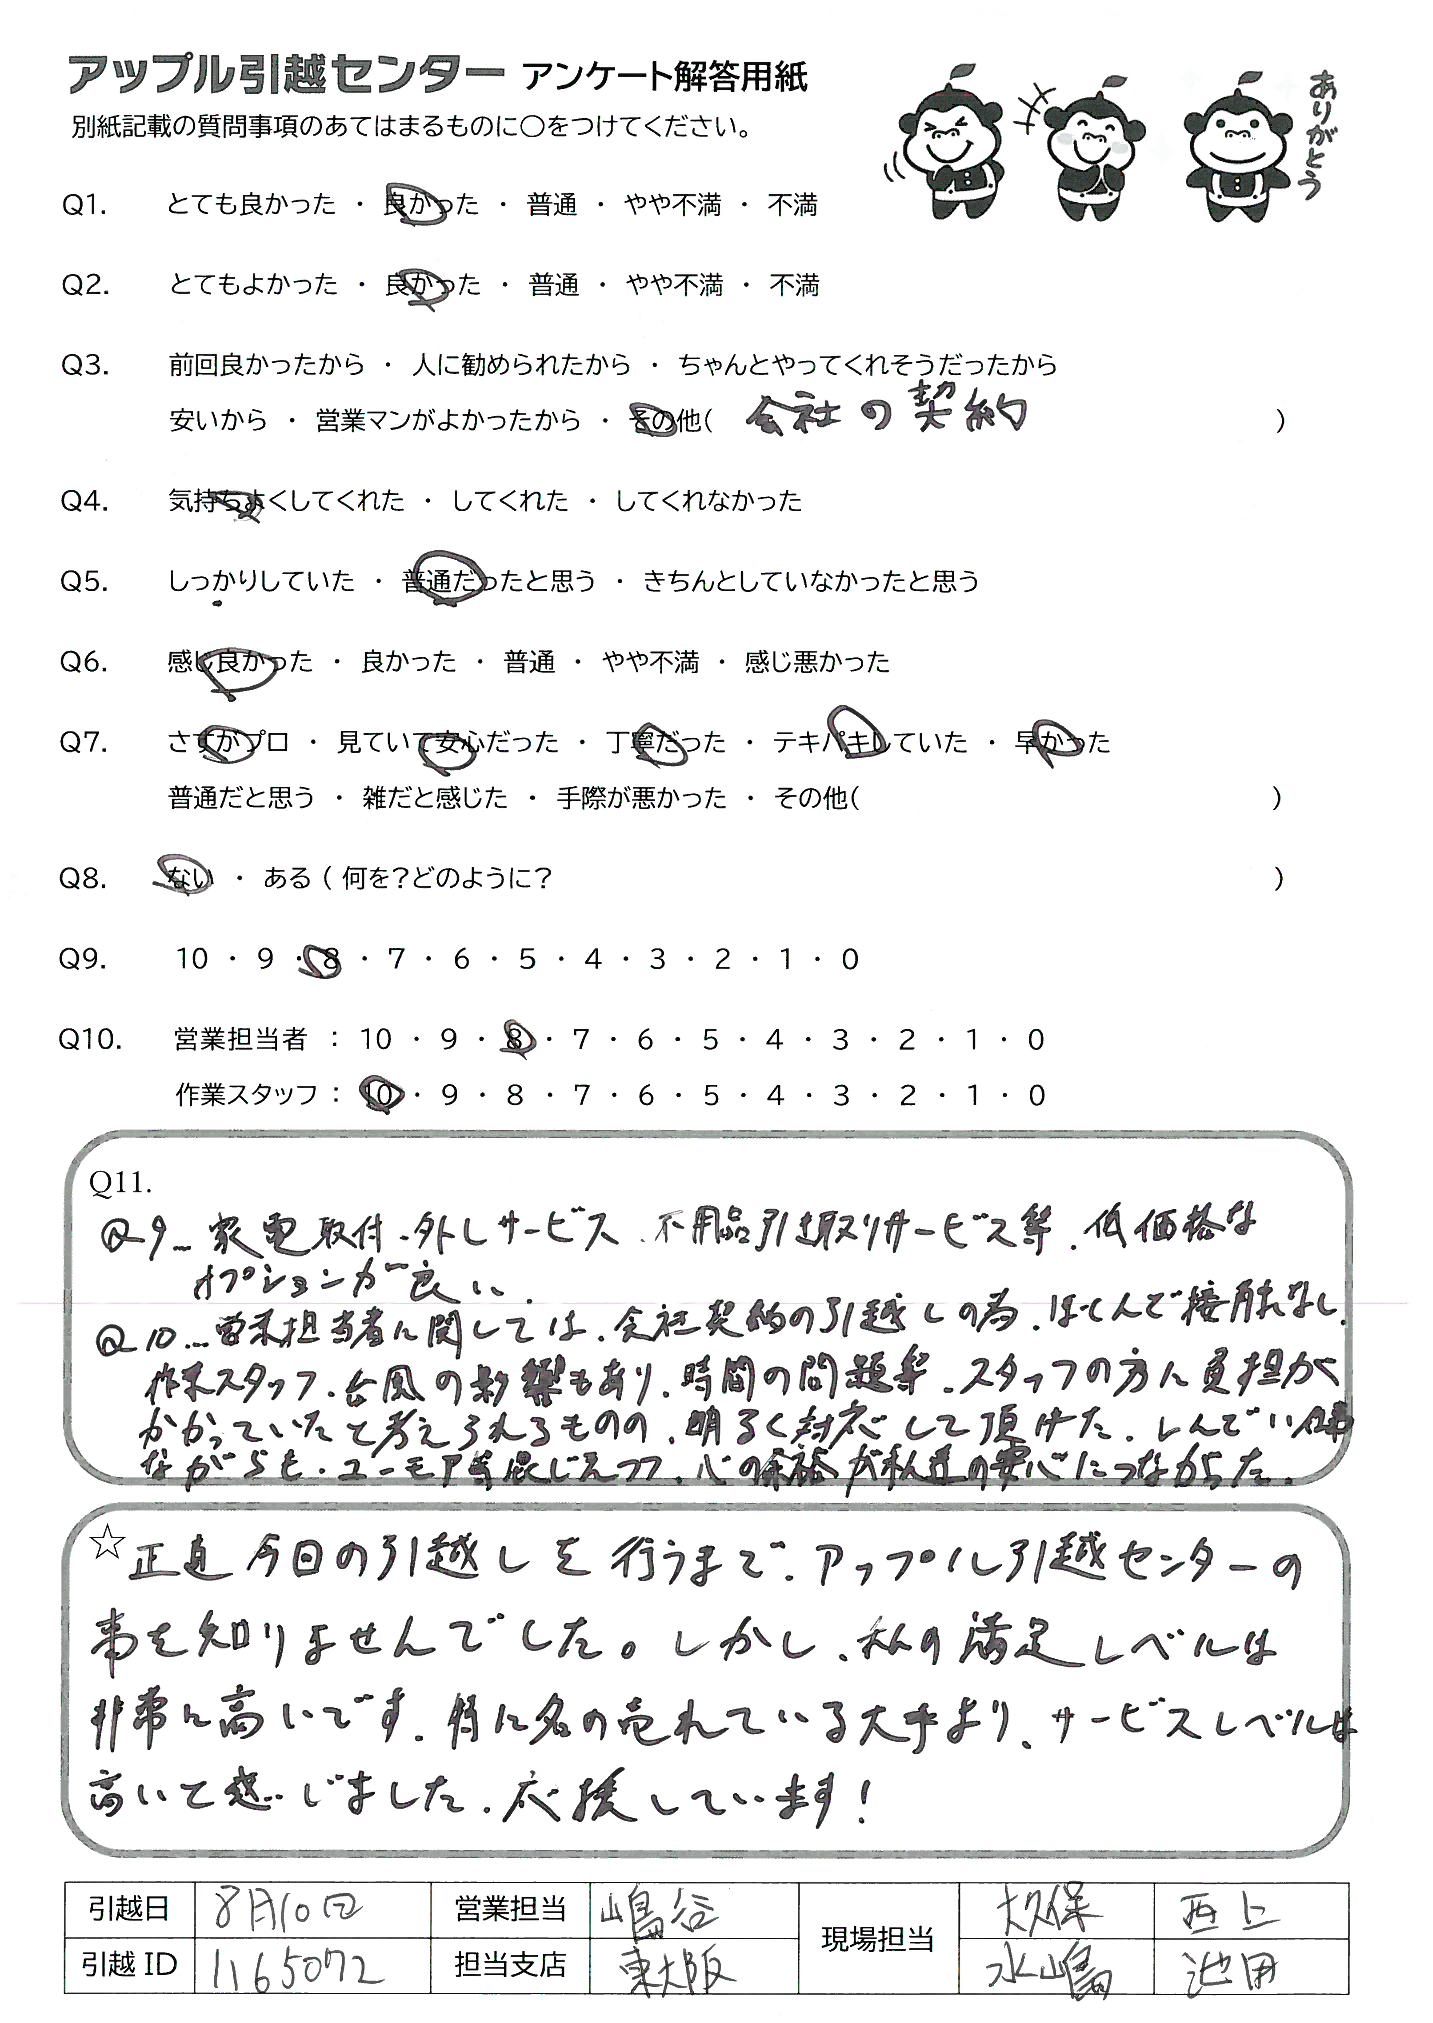 アップル引越センター アンケート解答用紙
別紙記載の質問事項のあてはまるものに〇をつけてください。
ありがとう
Q1. とても良かった ・ 良かった ・ 普通 ・ やや不満 ・ 不満
Q2. とてもよかった ・ 良かった ・ 普通 ・ やや不満 ・ 不満
Q3. 前回良かったから ・ 人に勧められたから ・ ちゃんとやってくれそうだったから
安いから ・ 営業マンがよかったから ・ その他( 会社の契約 )
Q4. 気持ちよくしてくれた ・ してくれた ・ してくれなかった
Q5. しっかりしていた ・ 普通だったと思う ・ きちんとしていなかったと思う
Q6. 感じ良かった ・ 良かった ・ 普通 ・ やや不満 ・ 感じ悪かった
Q7. さすがプロ ・ 見ていて安心だった ・ 丁寧だった ・ テキパキしていた ・ 早かった
普通だと思う ・ 雑だと感じた ・ 手際が悪かった ・ その他( )
Q8. ない ・ ある ( 何を?どのように? )
Q9. 10 ・ 9 ・ 8 ・ 7 ・ 6 ・ 5 ・ 4 ・ 3 ・ 2 ・ 1 ・ 0
Q10. 営業担当者 : 10 ・ 9 ・ 8 ・ 7 ・ 6 ・ 5 ・ 4 ・ 3 ・ 2 ・ 1 ・ 0
作業スタッフ : 10 ・ 9 ・ 8 ・ 7 ・ 6 ・ 5 ・ 4 ・ 3 ・ 2 ・ 1 ・ 0
Q11.
Q9… 家電取付、外しサービス、不用品引き取りサービス等、低価格な
オプションが良い、
Q10… 営業担当者に関しては、会社契約の引越しの為、ほとんど接触なし、
作業スタッフ、台風の影響もあり、時間の問題等、スタッフの方に負担が
かかっていたと考えられるものの、明るく対応して頂けた、しんどい仕事
ながらも、ユーモア等混じえつつ、心の余裕が私達の安心につながった、
☆ 正直今日の引越しを行うまで、アップル引越センターの
事を知りませんでした。しかし、私の満足レベルは
非常に高いです、特に名の売れている大手より、サービスレベルは
高いと感じました、応援しています!
引越日 8月10日 営業担当 嶋谷 現場担当 大久保 西上
引越ID 1165072 担当支店 東大阪 水嶋 池田